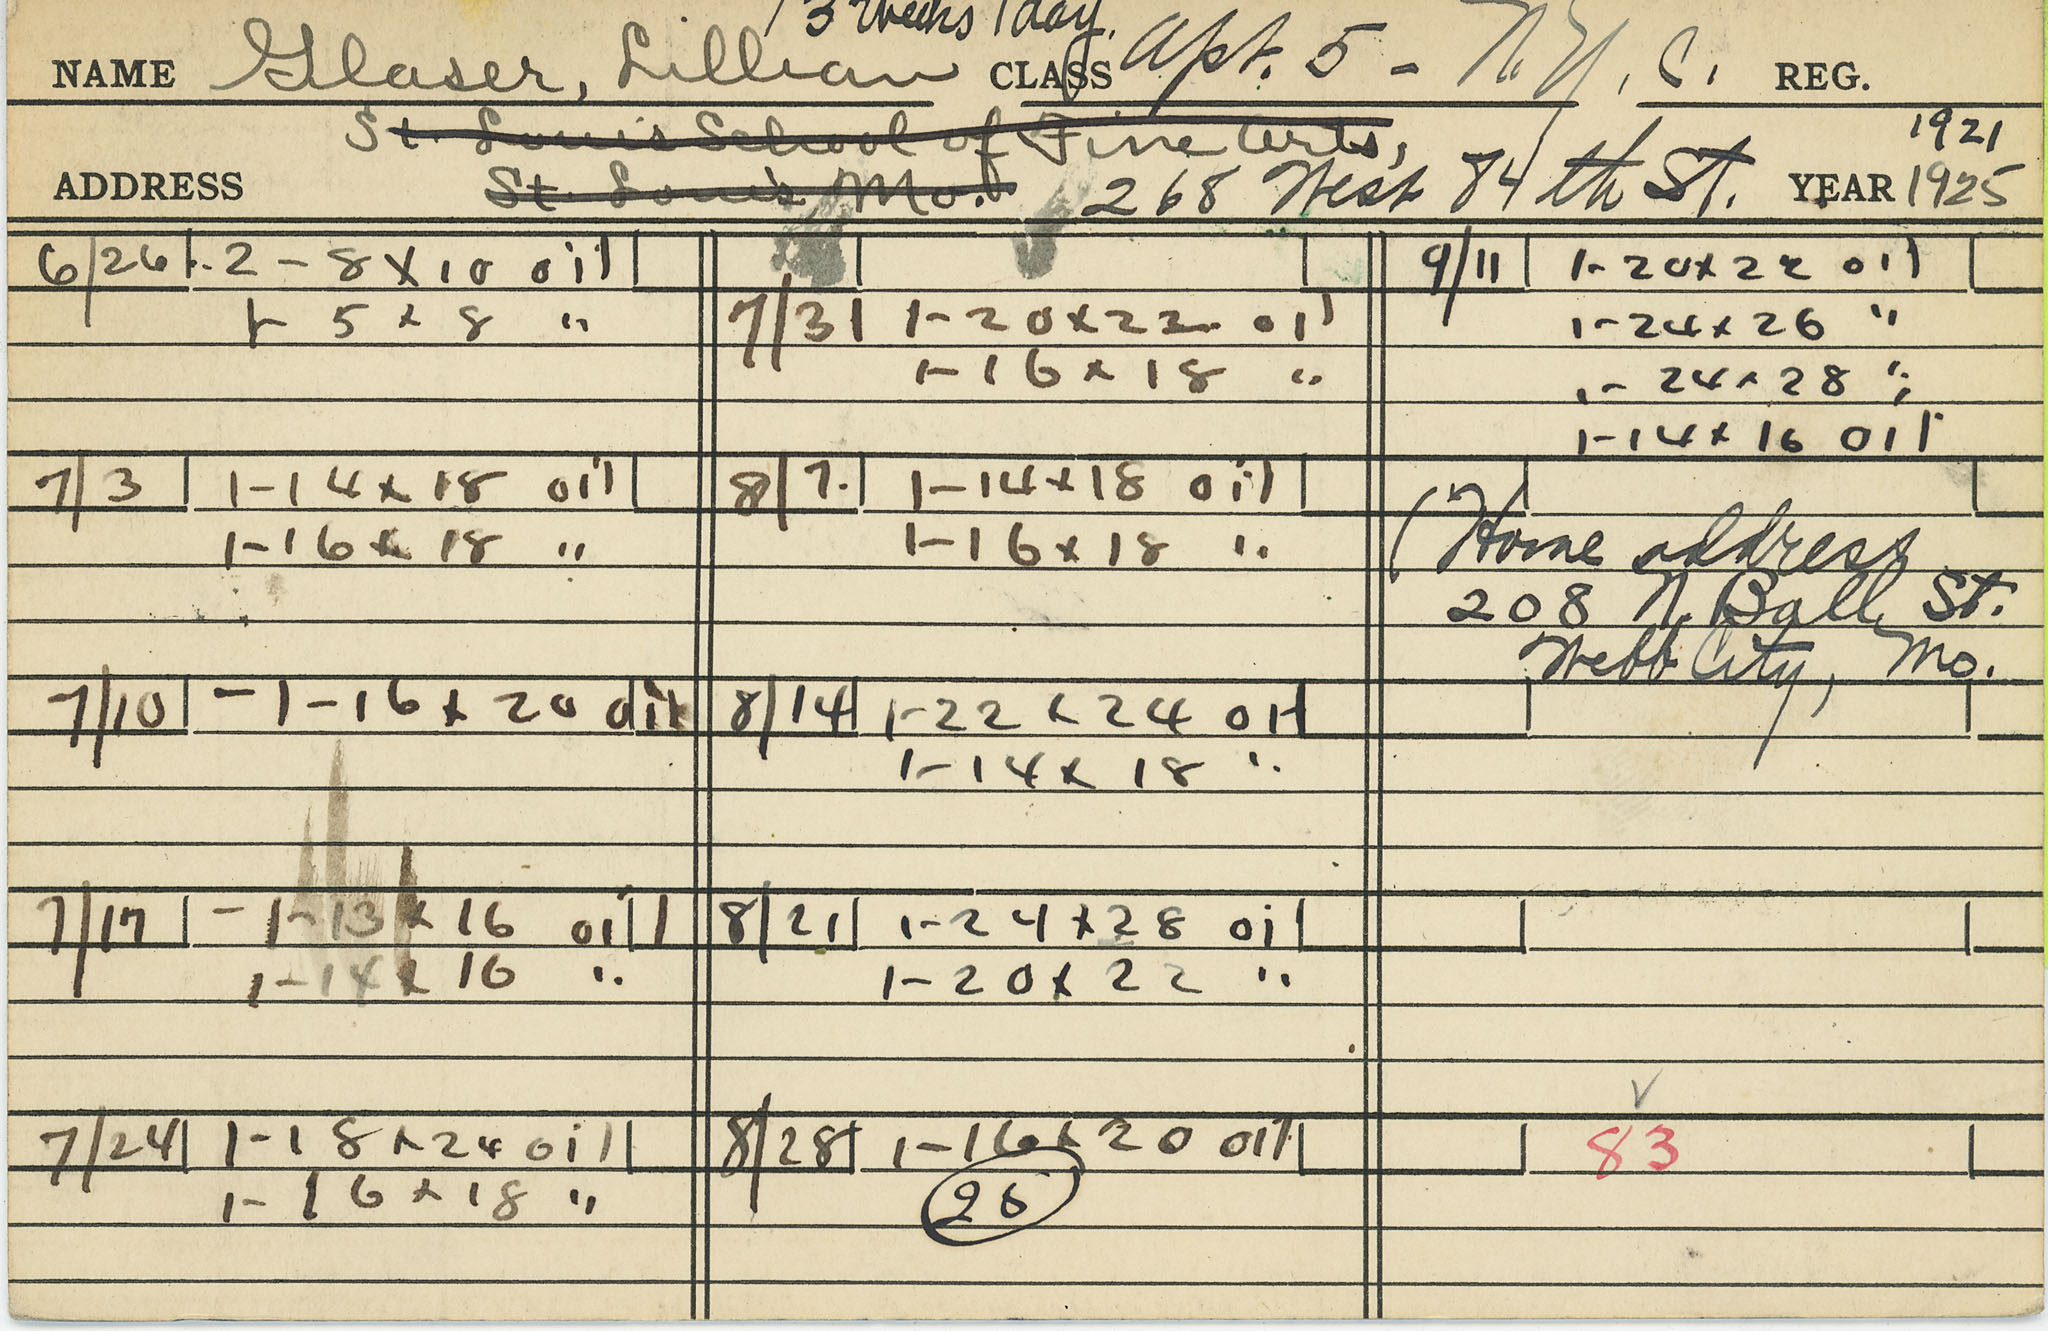 13 weeks 1 day.
NAME Glaser, Lillian CLASS Apt. 5 - N.Y.C. REG.
St. Louis School of Fine Arts,
1921
ADDRESS St. Louis, Mo. 268 West 84th St. YEAR 1925
6/26 2 - 8 x 10 oil
1- 5 x 8 "
7/3 1-14 x 18 oil
1-16 x 18 "
7/10 - 1-16 x 20 oil
7/17 - 1-13 x 16 oil
1-14 x 16 "
7/24 1-18 x 24 oil
1-16 x 18 "
7/31 1-20 x 22 oil
1-16 x 18 "
8/7. 1-14 x 18 oil
1-16 x 18 "
8/14 1-22 x 24 oil
1-14 x 18 "
8/21 1-24 x 28 oil
1-20 x 22 "
8/28 1-16 x 20 oil
26
9/11 1-20 x 22 oil
1-24 x 26 "
1- 24 x 28 "
1-14 x 16 oil
(Home address
208 N. Ball St.
Webb City, Mo.
83